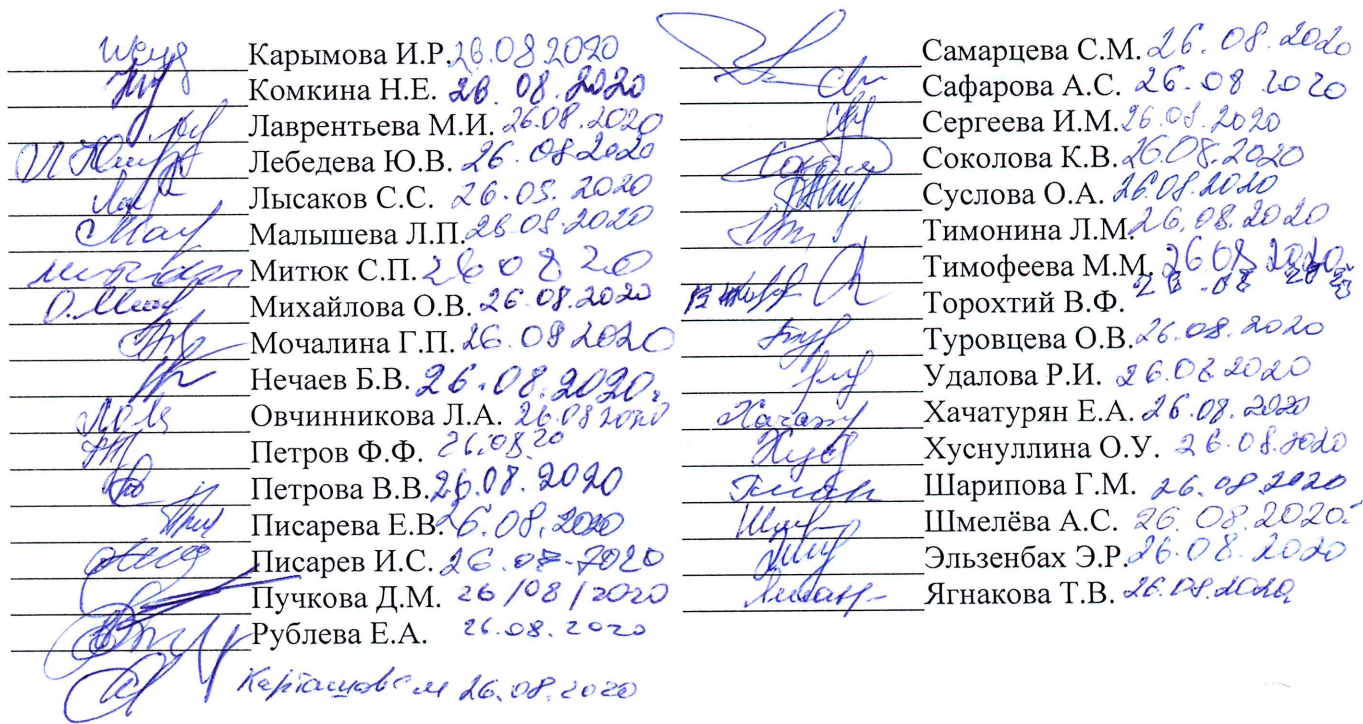 Карымова И.Р. 26.08 2020
Комкина Н.Е. 26. 08. 2020
Лаврентьева М.И. 26.08.2020
Лебедева Ю.В. 26.08.2020
Лысаков С.С. 26.08.2020
Малышева Л.П. 26.08.2020
Митюк С.П. 26 08 20
Михайлова О.В. 26.08.2020
Мочалина Г.П. 26.08 2020
Нечаев Б.В. 26.08.2020г
Овчинникова Л.А. 26.08 2020
Петров Ф.Ф. 26.08.20
Петрова В.В. 26.08.2020
Писарева Е.В. 26.08.2020
Писарев И.С. 26.08.2020
Пучкова Д.М. 26/08/2020
Рублева Е.А. 26.08.2020
26.08.2020
Самарцева С.М. 26.08.2020
Сафарова А.С. 26.08 2020
Сергеева И.М. 26.08.2020
Соколова К.В. 26.08.2020
Суслова О.А. 26.08.2020
Тимонина Л.М. 26.08.2020
Тимофеева М.М. 26.08.2020
Торохтий В.Ф.
Туровцева О.В. 26.08.2020
Удалова Р.И. 26.08.2020
Хачатурян Е.А. 26.08.2020
Хуснуллина О.У. 26.08.2020
Шарипова Г.М. 26.08.2020
Шмелёва А.С. 26.08.2020
Эльзенбах Э.Р. 26.08.2020
Ягнакова Т.В. 26.08.2020